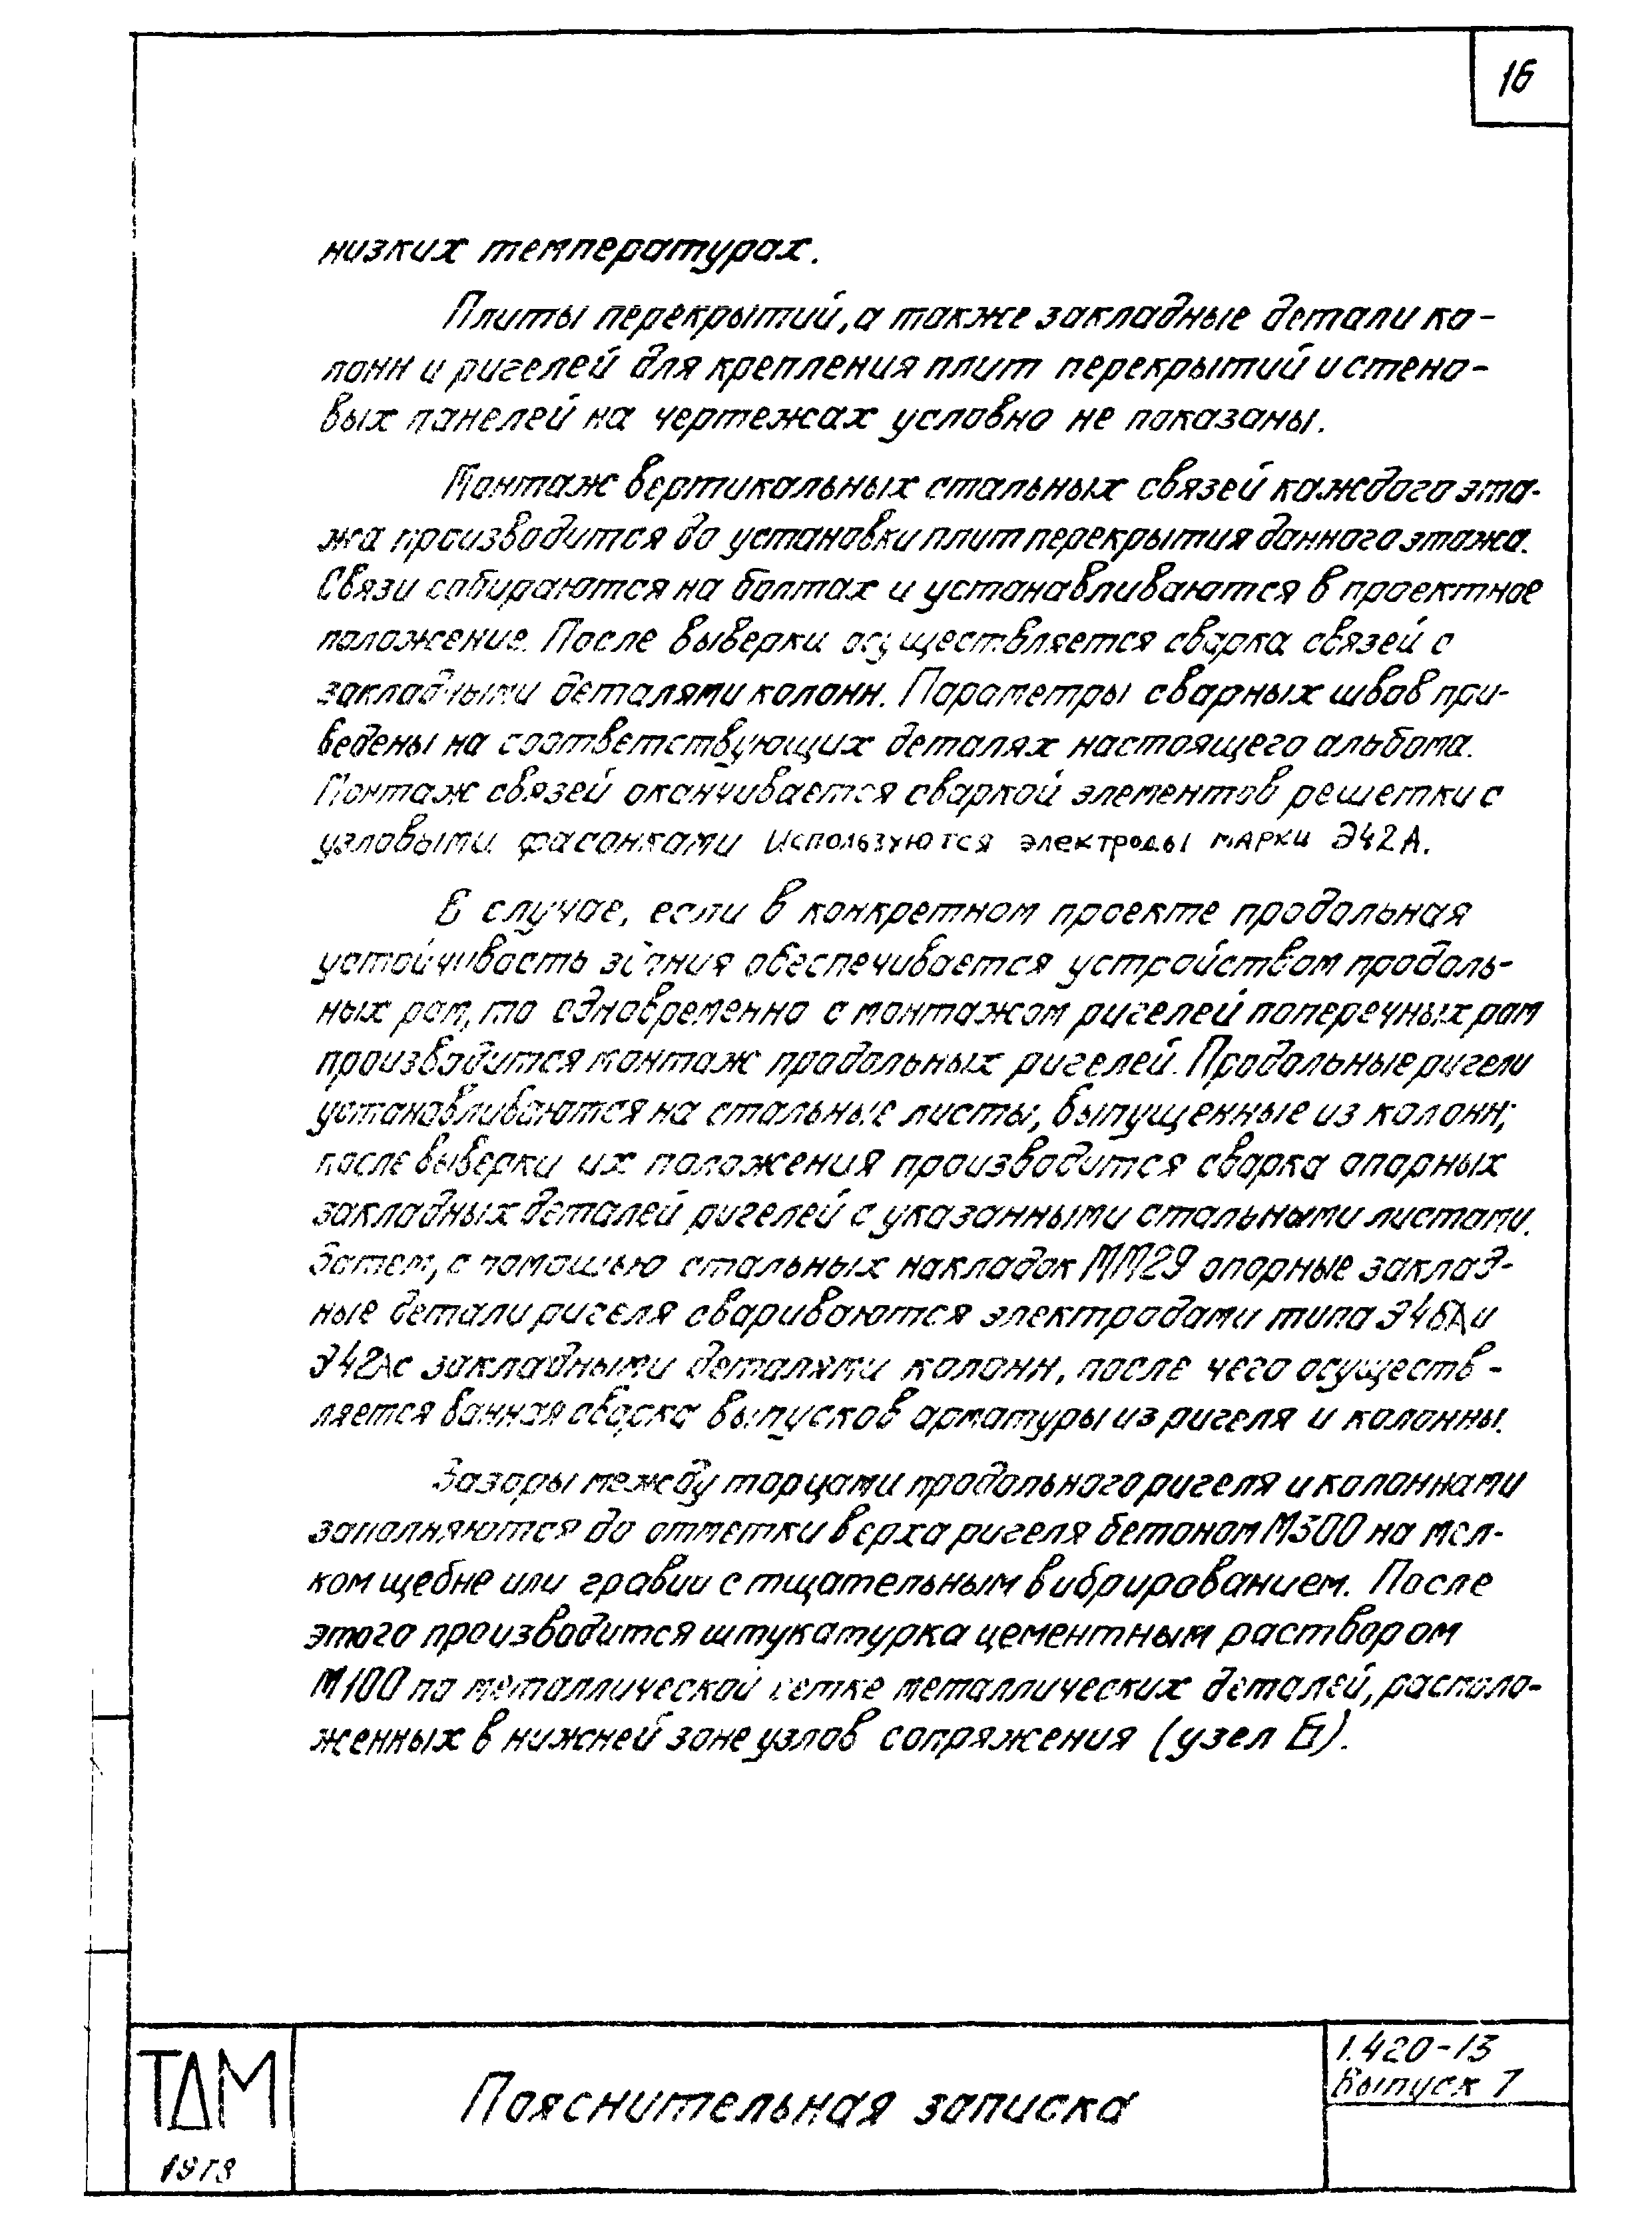 16
низких температурах.
Плиты перекрытий, а также закладные детали ко-
лонн и ригелей для крепления плит перекрытий и стено-
вых панелей на чертежах условно не показаны.
Монтаж вертикальных стальных связей каждого эта-
жа производится до установки плит перекрытия данного этажа.
Связи собираются на болтах и устанавливаются в проектное
положение. После выверки осуществляется сварка связей с
закладными деталями колонн. Параметры сварных швов при-
ведены на соответствующих деталях настоящего альбома.
Монтаж связей оканчивается сваркой элементов решетки с
узловыми фасонками Используются электроды марки Э42А.
В случае, если в конкретном проекте продольная
устойчивость здания обеспечивается устройством продоль-
ных рам, то одновременно с монтажом ригелей поперечных рам
производится монтаж продольных ригелей. Продольные ригели
устанавливаются на стальные листы, выпущенные из колонн;
после выверки их положения производится сварка опорных
закладных деталей ригелей с указанными стальными листами.
Затем, с помощью стальных накладок ММ29 опорные заклад-
ные детали ригеля свариваются электродами типа Э46А и
Э42А с закладными деталями колонн, после чего осуществ-
ляется ванная сварка выпусков арматуры из ригеля и колонны.
Зазоры между торцами продольного ригеля и колоннами
заполняются до отметки верха ригеля бетоном М300 на мел-
ком щебне или гравии с тщательным вибрированием. После
этого производится штукатурка цементным раствором
М100 по металлической сетке металлических деталей, располо-
женных в нижней зоне узлов сопряжения (узел Б).
ТДМ
1978
Пояснительная записка
1.420-13
Выпуск 7